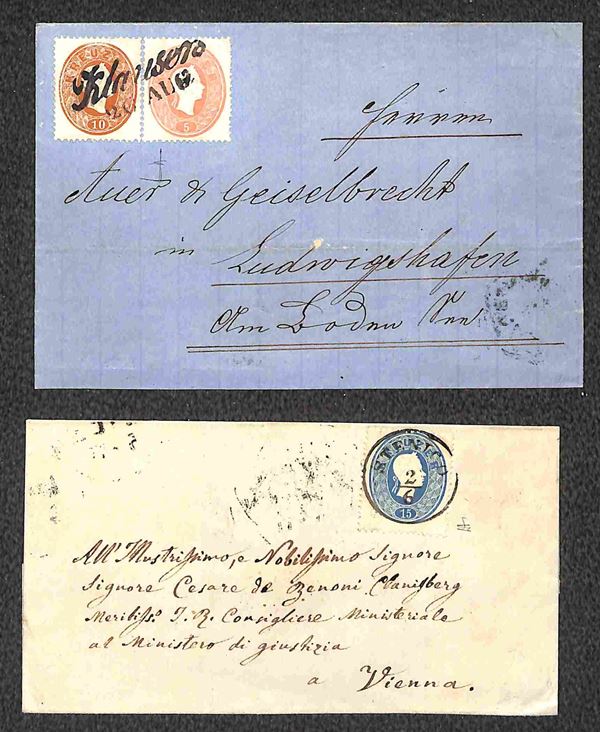 KREUZER
10
5
Klausen
AUG
Herren
Auer & Geiselbrecht
in
Ludwigshafen
Am Boden See
2/6
15
All'Illustrissimo, e Nobilissimo Signore
Signore Cesare de Benoni
Meritiss.o I. R. Consigliere Ministeriale
al Ministero di giustizia
a Vienna.